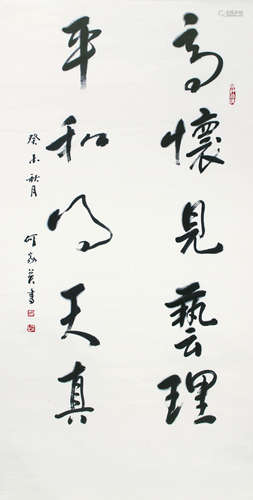 高懷見藝理
平和得天真
癸未秋月
何家英書